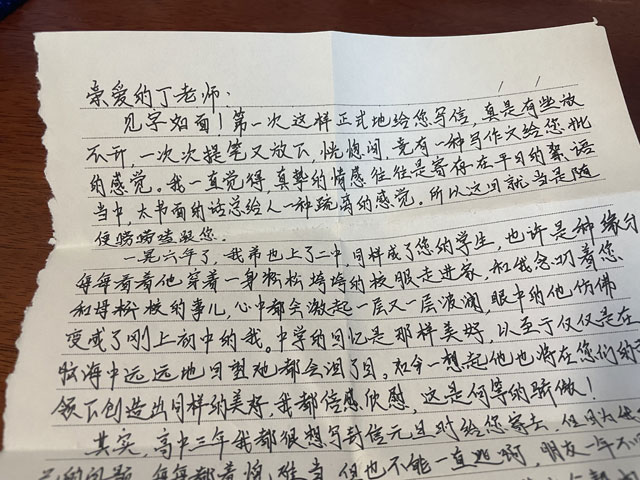 亲爱的丁老师：
见字如面！第一次这样正式地给您写信，真是有些放
不开，一次次提笔又放下，恍惚间，竟有一种写作文给您批
的感觉。我一直觉得真挚的情感往往是寄存在平日的絮语
当中，太书面的话总给人一种疏离的感觉。所以这回就当是随
便唠唠嗑跟您。
一晃六年了，我弟也上了二中，同样成了您的学生，也许是种缘分
每每看着他穿着一身松松垮垮的校服走进家，和我念叨着您
和母松校的事儿，心中都会激起一层又一层波澜，眼中的他仿佛
变成了刚上初中的我。中学的回忆是那样美好，以至于仅仅是在
脑海中远远地回望她都会泪了目。如今一想起他也将在您们的
领下创造出同样的美好，我都倍感欣慰，这是何等的骄傲！
其实，高中三年我都很想写封信元旦时给您寄去，但
的问题，每每都着恼，难
但也不能一直
啊，朋友一年不